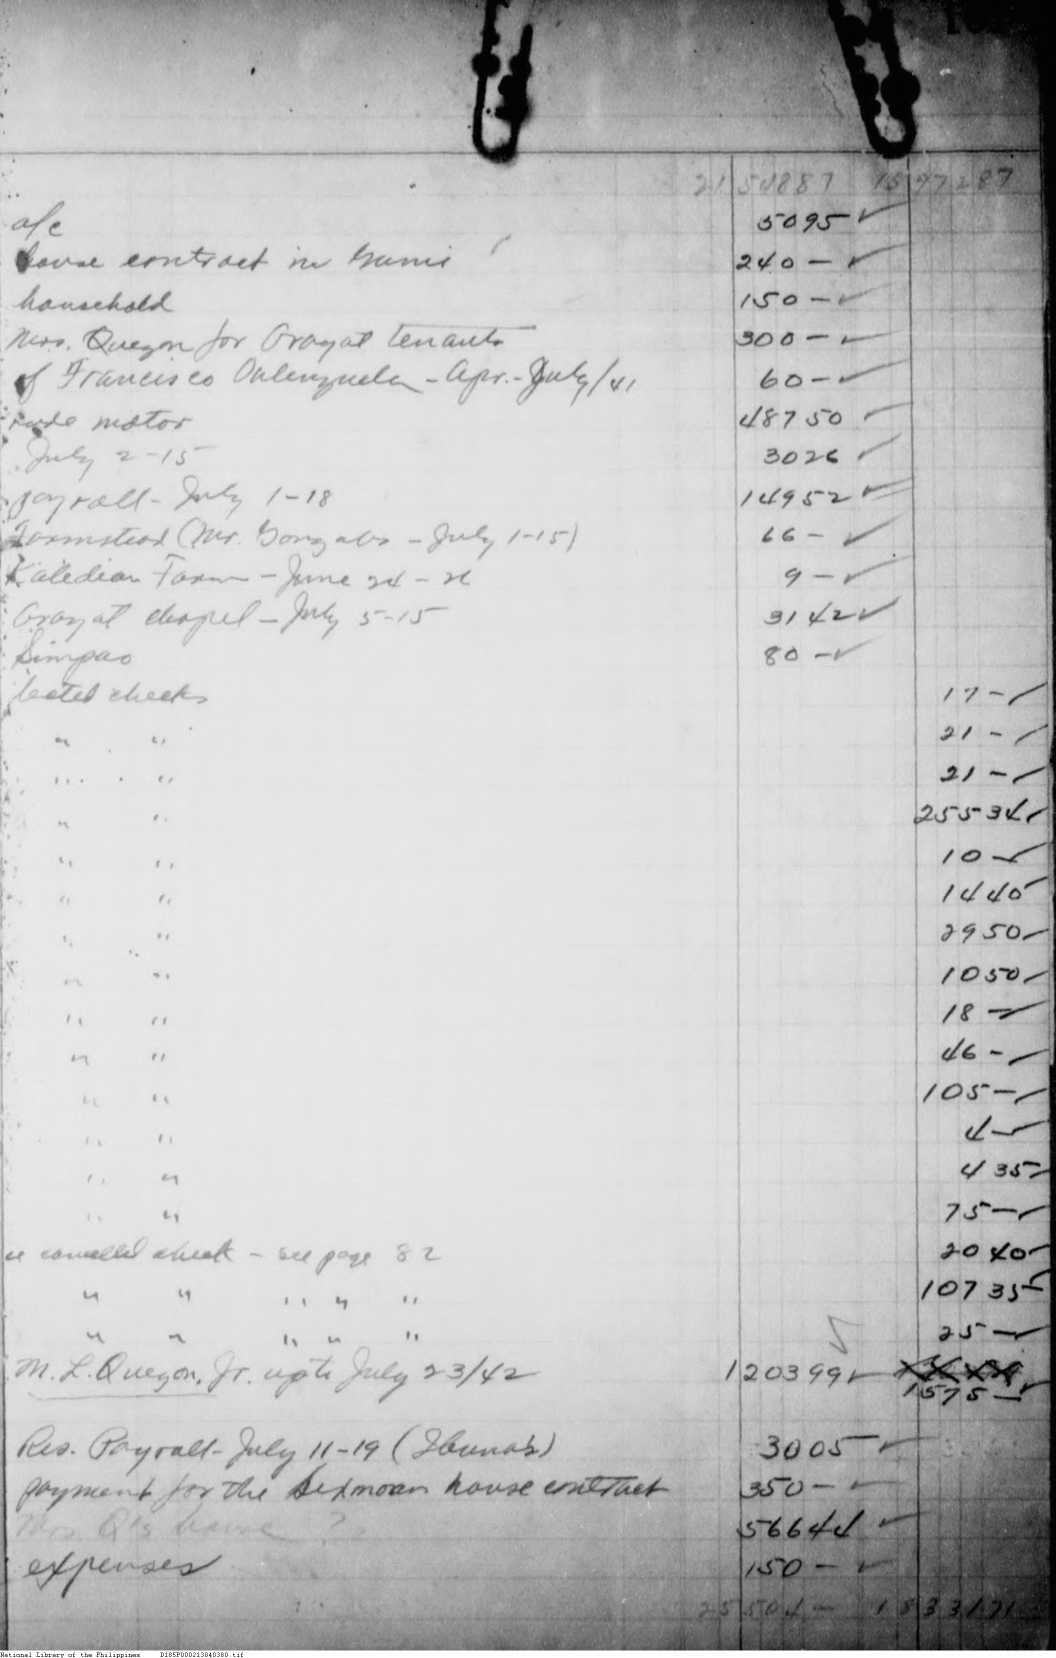 21 508 87 15 972 87
a/c 50 95 ✓
house contract in 240 — ✓
household 150 — ✓
Mrs. Quezon for Arayat tenants 300 — ✓
of Francisco Valenzuela - Apr. - July/41 60 — ✓
motor 487 50 ✓
July 2-15 30 26 ✓
payroll - July 1-18 149 52 ✓
Farmstead (Mr. Gonzales - July 1-15) 66 — ✓
Kaledian Farm - June 24 - 26 9 — ✓
Arayat chapel - July 5-15 31 42 ✓
Simpao 80 — ✓
checks 17 — ✓
" " 21 — ✓
" " 21 — ✓
" " 255 34 ✓
" " 10 — ✓
" " 14 40
" " 29 50
" " 10 50
" " 18 — ✓
" " 46 — ✓
" " 105 — ✓
" " 4 — ✓
" " 4 35
" " 75 — ✓
cancelled check - see page 82 20 40
" " " " " 107 35
" " " " " 25 — ✓
M. L. Quezon, Jr. up to July 23/42 1 203 99 ✓
1 575 — ✓
Res. Payroll - July 11-19 ( 30 05 ✓
payment for the Sexmoan house contract 350 — ✓
Mrs. Q's house ? 566 44 ✓
expenses 150 — ✓
25 504 — 18 331 71
National Library of the Philippines D185P000213040380.tif